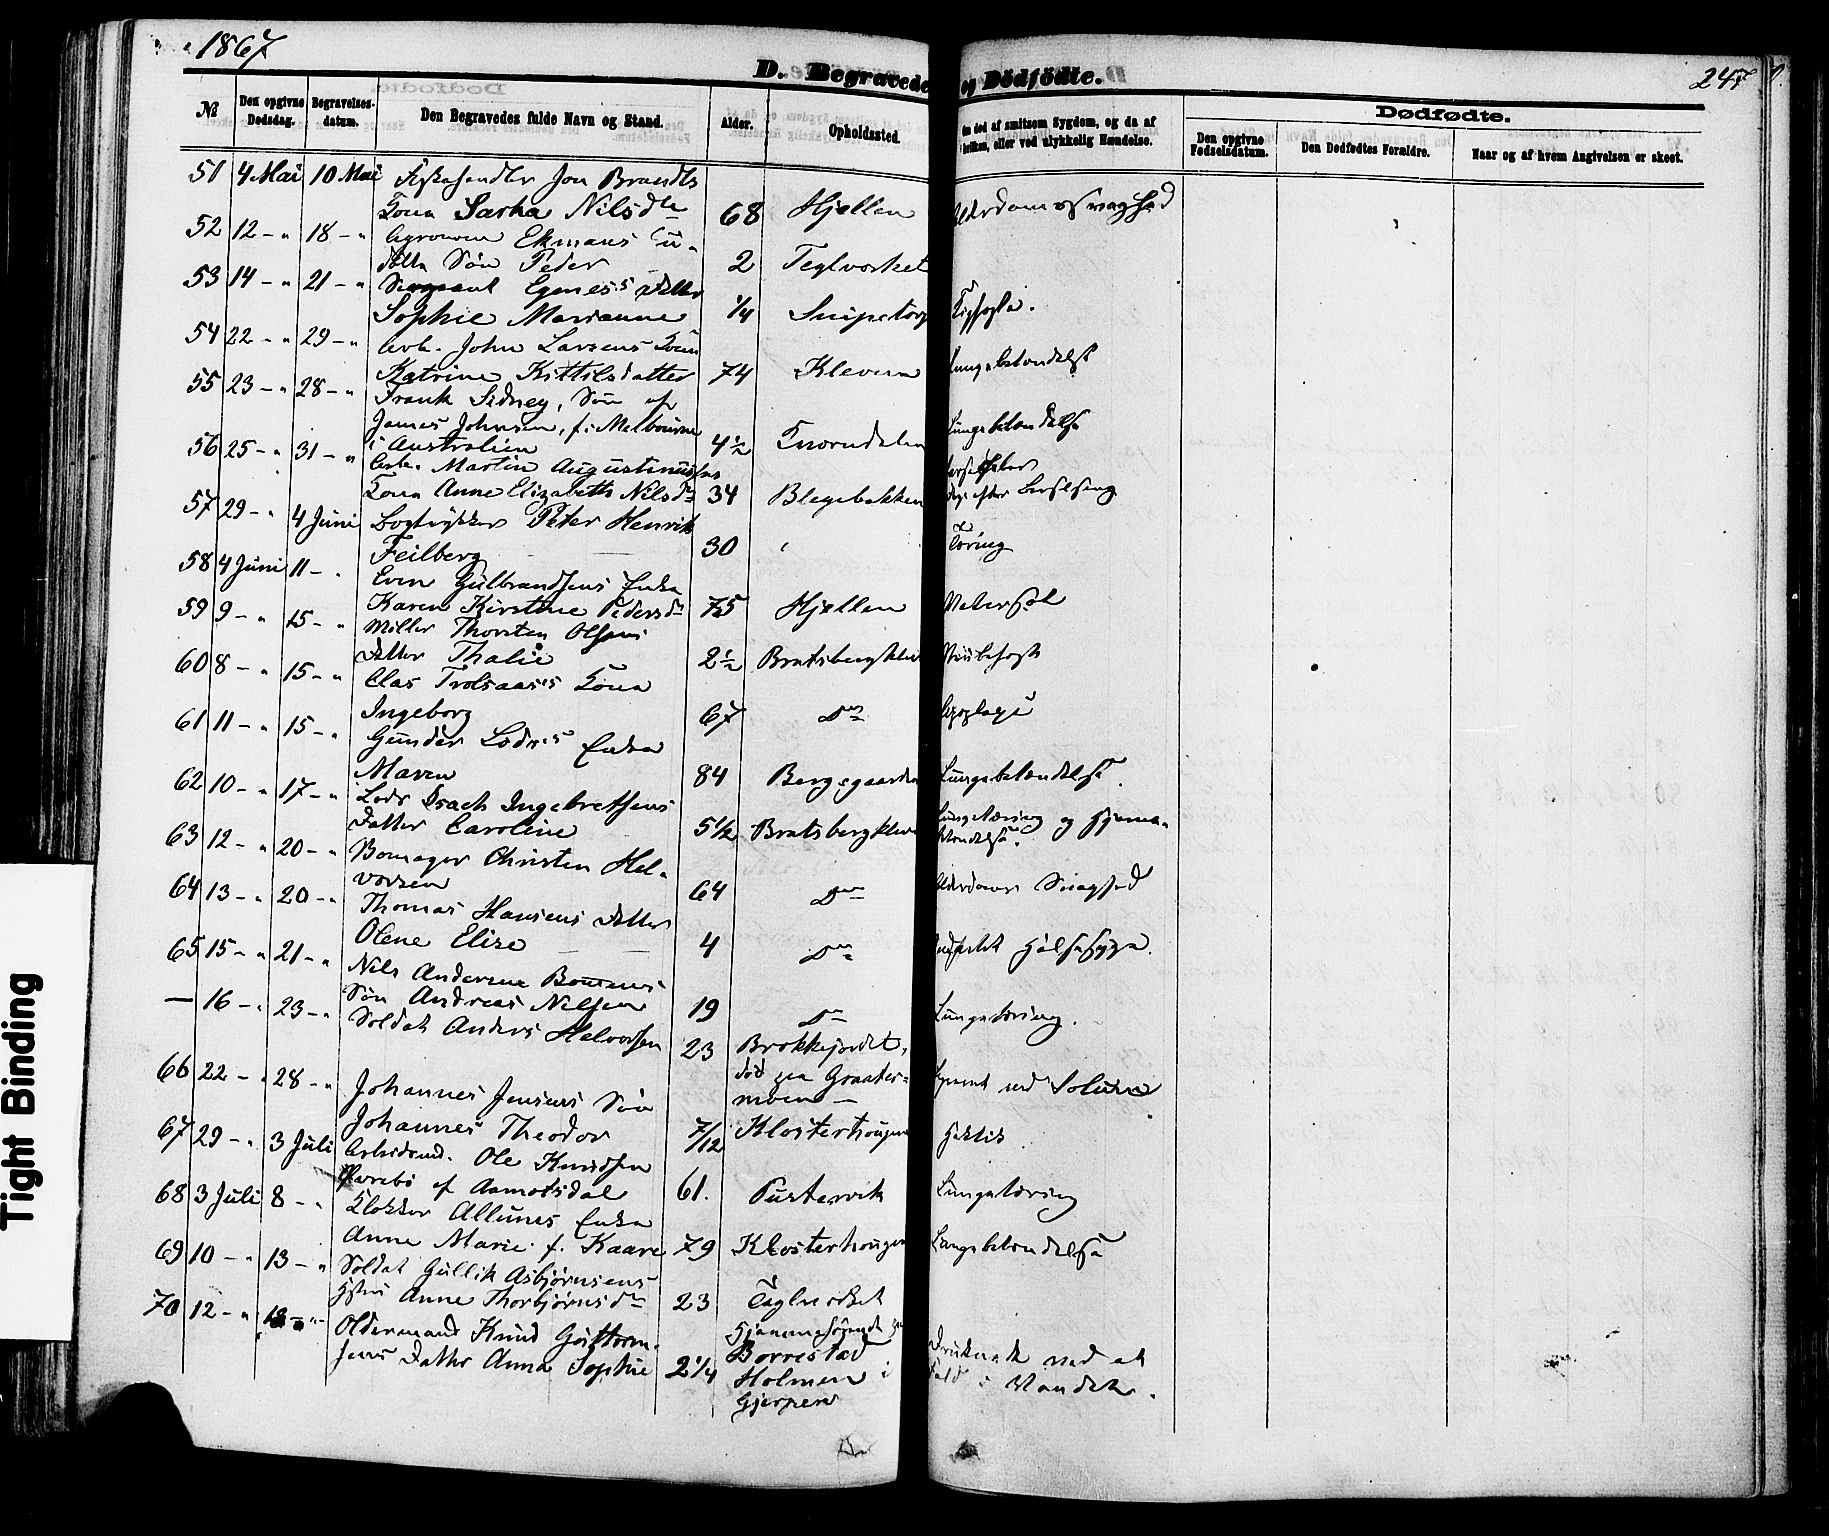 1867
D. Begravede og Dödfödte.
247
№ Den opgivne Dødsdag. Begravelses-datum. Den Begravedes fulde Navn og Stand. Alder. Opholdssted. død af smitsom Sygdom, og da af hvilken, eller ved ulykkelig Hændelse. Dødfødte. Den opgivne Fødselsdatum. Den Dødfødtes Forældre. Naar og af hvem Angivelsen er skeet.
51 4 Mai 10 Mai Fiskehandler Jon Brandts
Kona Sarha Nilsdtr 68 Hjellen Alderdomssvaghed
52 12 - " 18 - " Agronom Ekmans u-
døbte Søn Peder 2 Teglverket
53 14 - " 21 - " Sergeant Egenes's Datter
Sophie Marianne 1/4 Snipetorp Kighoste.
54 22 - " 29 - " Arb. John Larsens Kone
Katrine Kittilsdatter 74 Kleven Lungebetændelse
55 23 - " 28 - " Frank Sidney, Søn af
James Johnson, f. i Melbourne
i Australien 4½ Snorudalen Lungebetændelse
56 25 - " 31 - " Arb. Martin Augustinussens
Kona Anne Elizabeth Nilsdr 34 Blegebakken efter Barselseng
57 29 - " 4 Juni Bogtrykker Peter Henrik
Feilberg 30 " Tæring
58 4 Juni 11 - " Even Gulbrandsens Enke
Karen Kirstine Pedersdr 75 Hjellen Vatersot
59 9 - " 15 - " Møller Thorsten Olsens
Datter Thalie 2½ Bratsbergklev Strubehoste
60 8 - " 15 - " Clas Trolsaases Kona
Ingeborg 67 Do Apoplexi
61 11 - " 15 - " Gunder Lodnes Enke
Maren 84 Bergsgaarden Lungebetændelse.
62 10 - " 17 - " Lods Isach Ingebretsens
Datter Caroline 5½ Bratsbergklev Lungetæring og Hjerne-
betændelse.
63 12 - " 20 - " Bomager Christen Hal-
vorsen 64 Do Alderdoms Svaghed
64 13 - " 20 - " Thomas Hansens Datter
Olene Elise 4 Do Halsesyge.
65 15 - " 21 - " Nils Andersens
Søn Andreas Nilsen 19 Do Lungetæring.
— 16 - " 23 - " Soldat Anders Halvorsen 23 Brokkejordet,
død paa Graater-
moen —
66 22 - " 28 - " Johannes Jensens Søn
Johannes Theodor 7/12 Klosterhougen Hektik
67 29 - " 3 Juli Arbeidsmd. Ole Knudsen
af Aamotsdal 61. Pustervik Lungetæring
68 3 Juli 8 - " Klokker Allunes Enke
Anne Marie f. Kaare 79 Klosterhougen Lungebetændelse
69 10 - " 13 - " Soldat Gullik Asbjørnsens
Hstru Anne Thorbjørnsdr 23 Teglverket
70 12 - " 18 - " Oldermand Knud Guttorm-
sens Datter Anna Sophie 2¼ Hjemmehørende paa
Borrestad
Holmen i
Gjerpen Druknede ved at
falde i Vandet.
Tight Binding